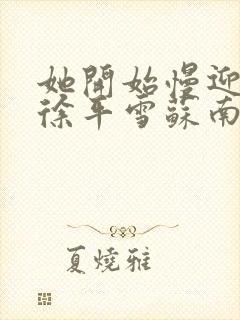 她開始慢迎
徐平雪蘇南
夏燒雅